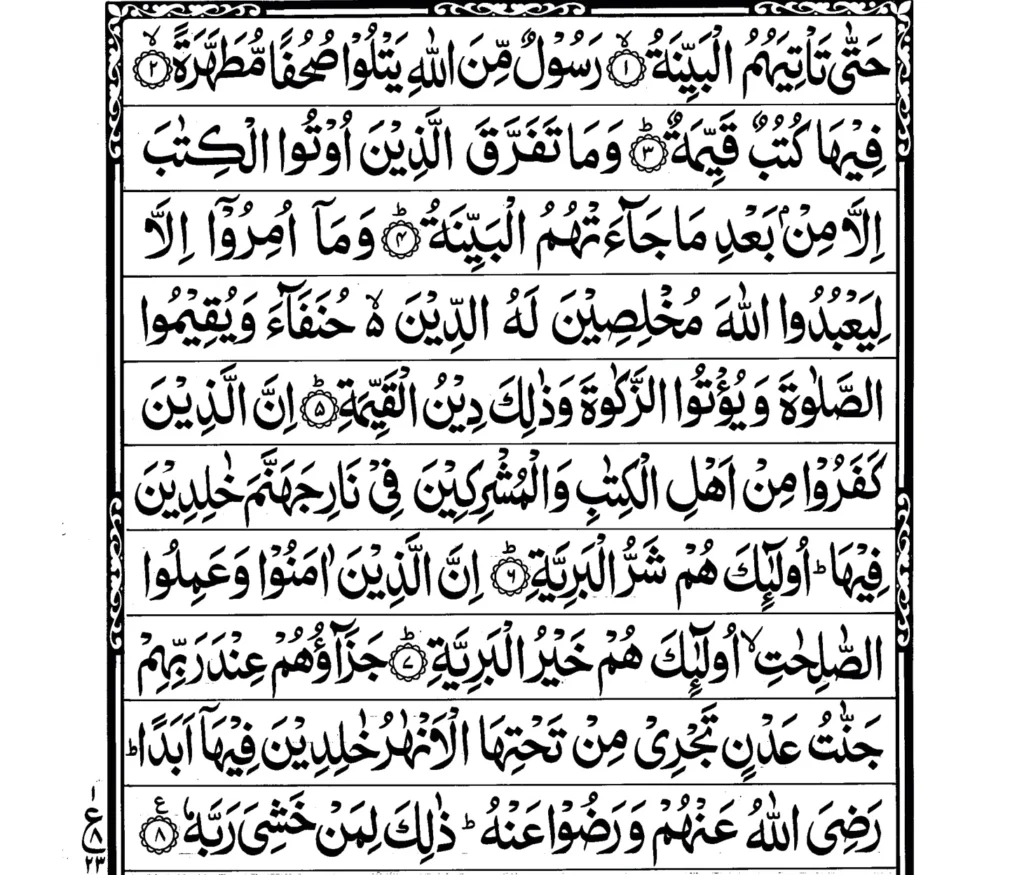 حَتّٰى تَاْتِيَهُمُ الْبَيِّنَةُ ۙ‏﴿۱﴾ رَسُوْلٌ مِّنَ اللّٰهِ يَتْلُوْا صُحُفًا مُّطَهَّرَةً ۙ‏﴿۲﴾
فِيْهَا كُتُبٌ قَيِّمَةٌ ؕ‏﴿۳﴾ وَمَا تَفَرَّقَ الَّذِيْنَ اُوْتُوا الْكِتٰبَ
اِلَّا مِنْۢ بَعْدِ مَا جَآءَتْهُمُ الْبَيِّنَةُ ؕ‏﴿۴﴾ وَمَاۤ اُمِرُوْۤا اِلَّا
لِيَعْبُدُوا اللّٰهَ مُخْلِصِيْنَ لَهُ الدِّيْنَ ۵ۙ حُنَفَآءَ وَيُقِيْمُوا
الصَّلٰوةَ وَيُؤْتُوا الزَّكٰوةَ وَذٰلِكَ دِيْنُ الْقَيِّمَةِ ؕ‏﴿۵﴾ اِنَّ الَّذِيْنَ
كَفَرُوْا مِنْ اَهْلِ الْكِتٰبِ وَالْمُشْرِكِيْنَ فِىْ نَارِ جَهَنَّمَ خٰلِدِيْنَ
فِيْهَا ؕ اُولٰٓئِكَ هُمْ شَرُّ الْبَرِيَّةِ ؕ‏﴿۶﴾ اِنَّ الَّذِيْنَ اٰمَنُوْا وَعَمِلُوا
الصّٰلِحٰتِ ۙ اُولٰٓئِكَ هُمْ خَيْرُ الْبَرِيَّةِ ؕ‏﴿۷﴾ جَزَآؤُهُمْ عِنْدَ رَبِّهِمْ
جَنّٰتُ عَدْنٍ تَجْرِىْ مِنْ تَحْتِهَا الْاَنْهٰرُ خٰلِدِيْنَ فِيْهَاۤ اَبَدًا ؕ
رَضِىَ اللّٰهُ عَنْهُمْ وَرَضُوْا عَنْهُ ؕ ذٰلِكَ لِمَنْ خَشِىَ رَبَّهٗ ‏﴿۸﴾ ع
۱
ع
۸
۲۳